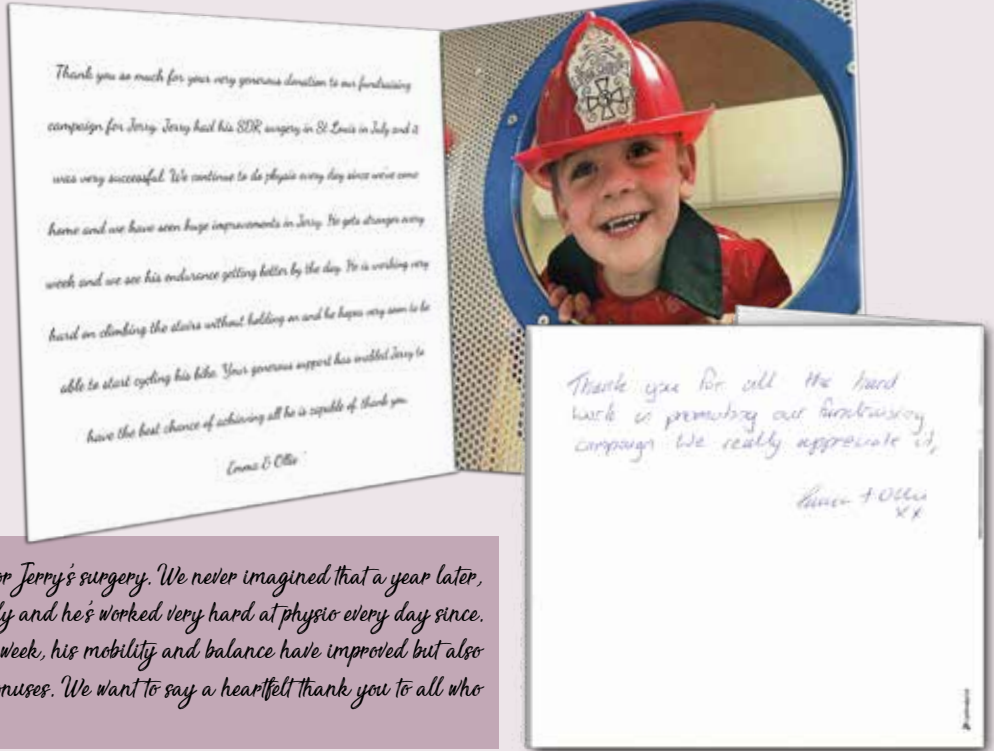 Thank you so much for your very generous donation to our fundraising
campaign for Jerry. Jerry had his SDR surgery in St Louis in July and it
was very successful. We continue to do physio every day since we've come
home and we have seen huge improvements in Jerry. He gets stronger every
week and we see his endurance getting better by the day. He is working very
hard on climbing the stairs without holding on and he hopes very soon to be
able to start cycling his bike. Your generous support has enabled Jerry to
have the best chance of achieving all he is capable of, thank you.
Emma & Ollie
Thank you for all the hard
work in promoting our fundraising
campaign We really appreciate it,
Emma + Ollie
xx
or Jerry's surgery. We never imagined that a year later,
ly and he's worked very hard at physio every day since.
week, his mobility and balance have improved but also
onuses. We want to say a heartfelt thank you to all who